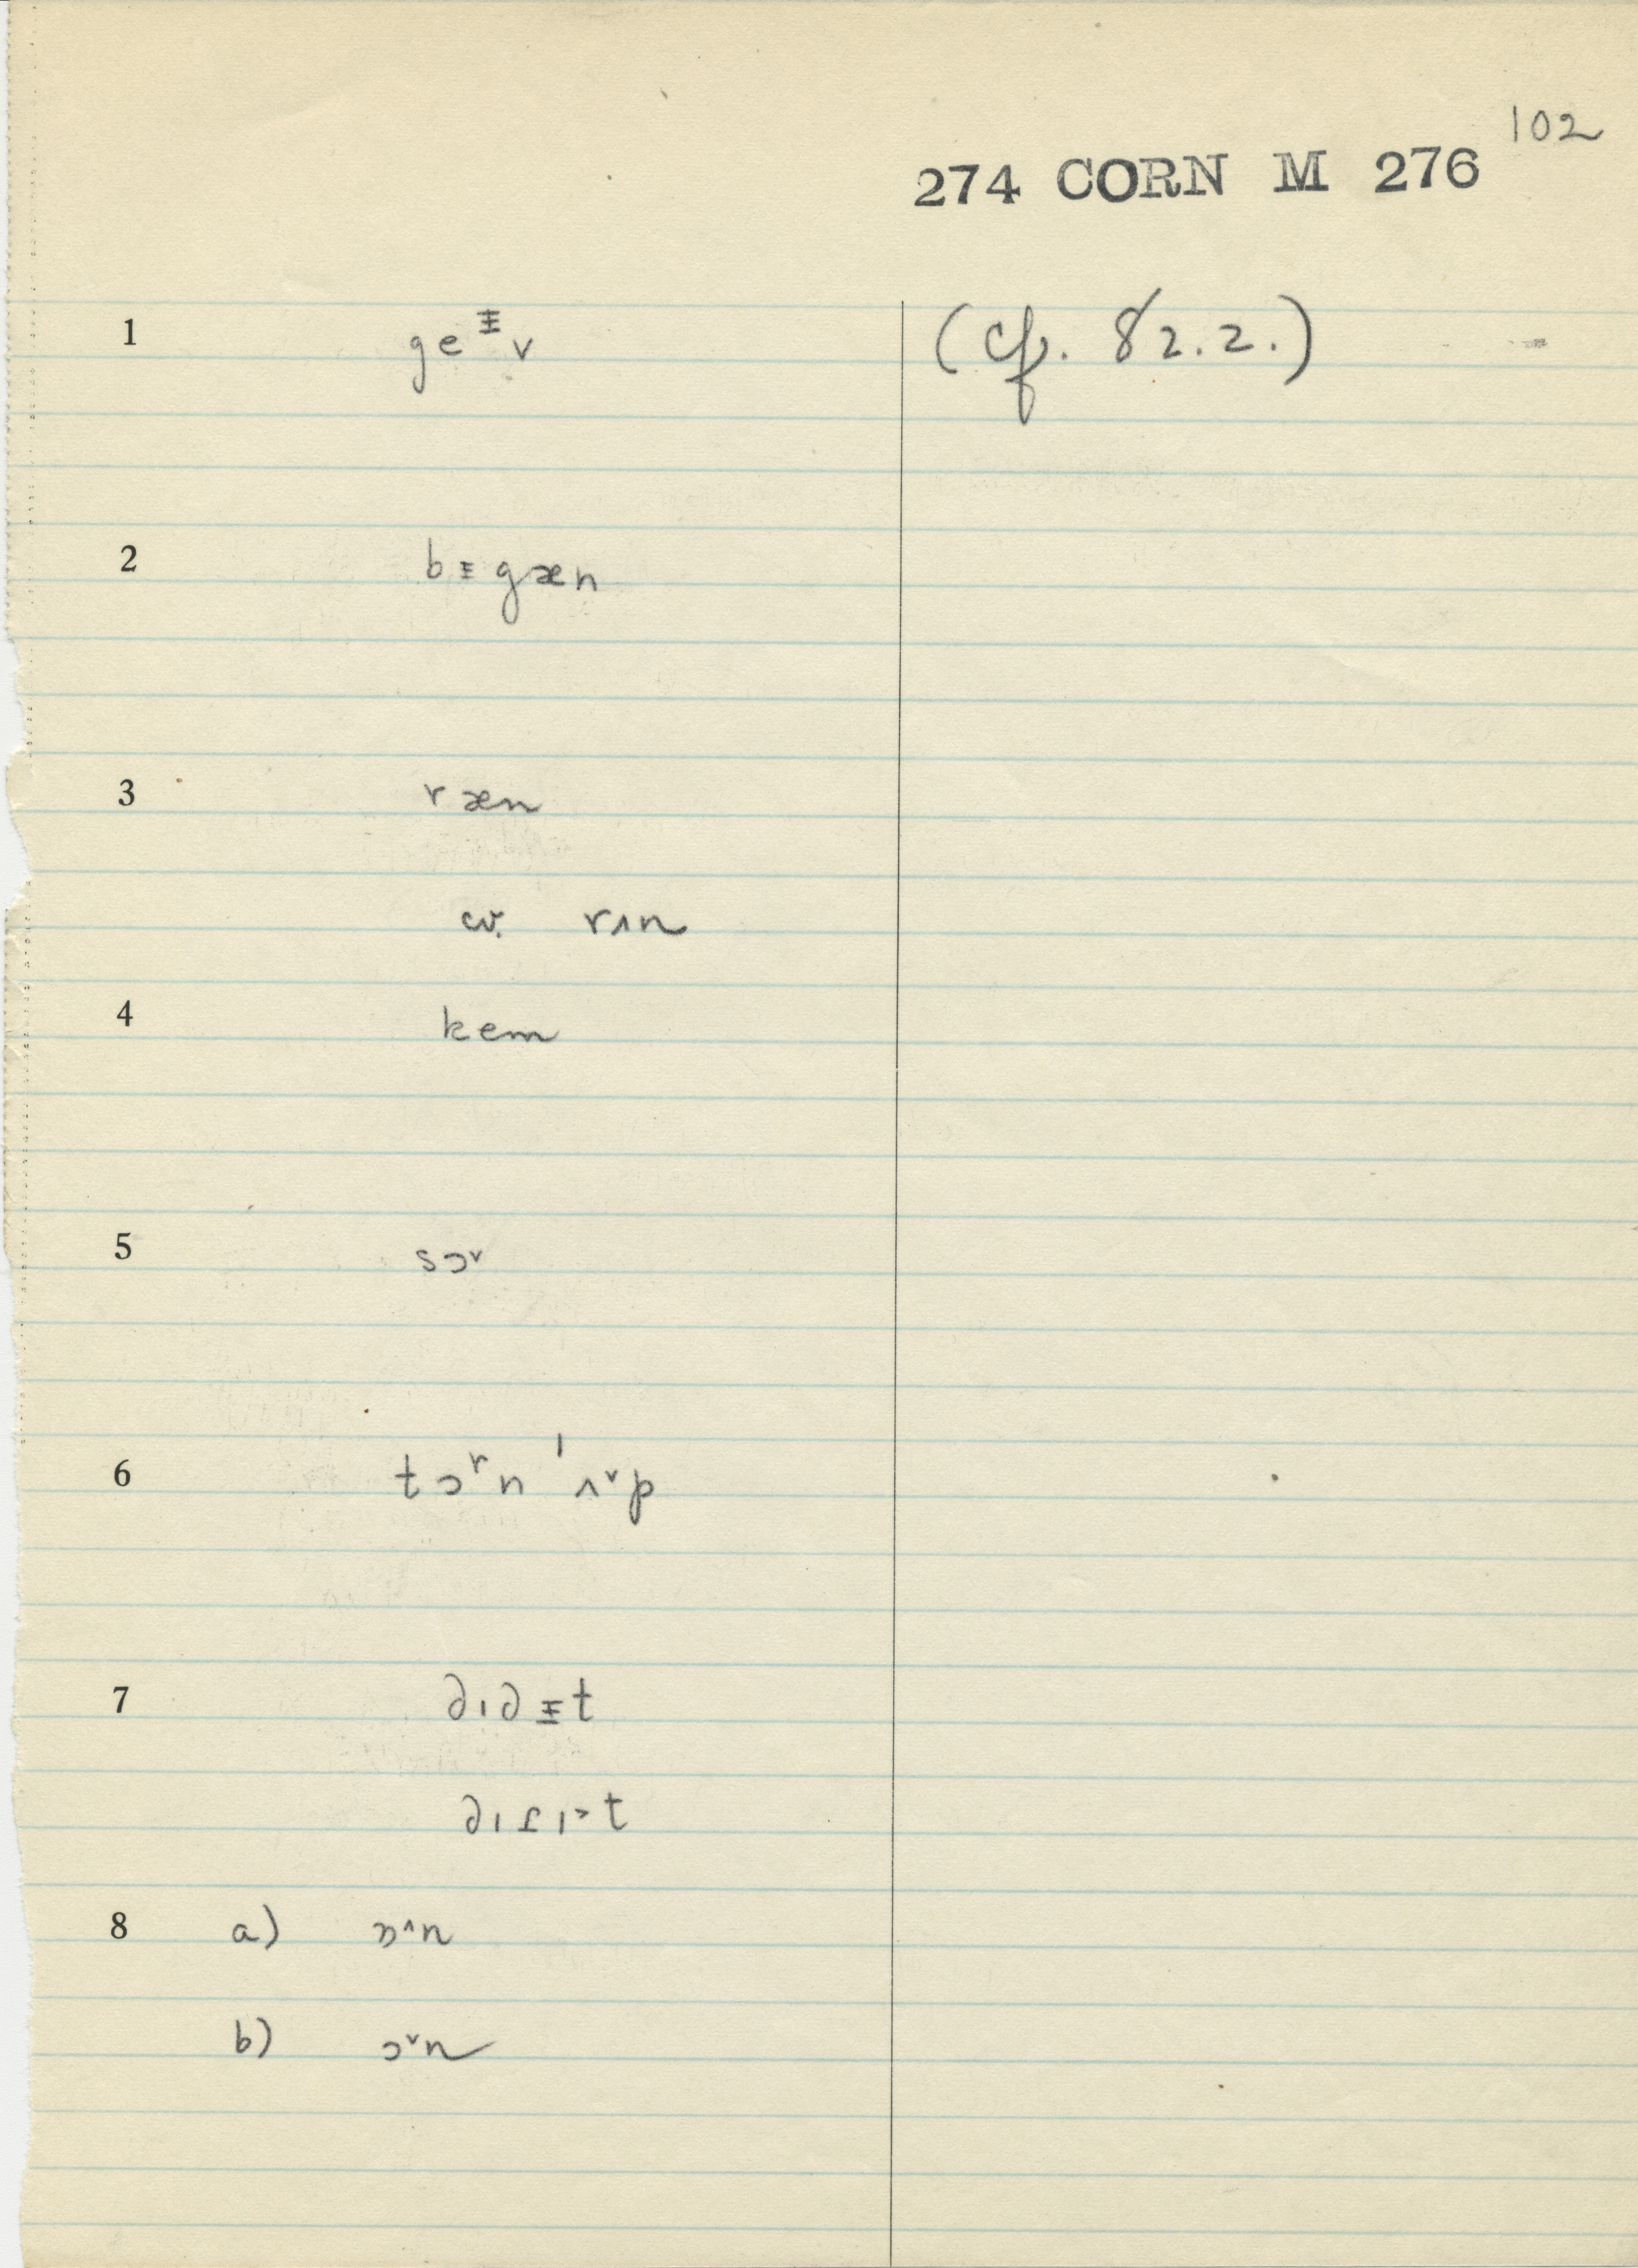 102
274 CORN M 276
1 geᵻv (cf. 82.2.)
2 bᵻgæn
3 ræn
cv. rʌn
4 kem
5 sɔ˅
6 tɔʳn ˈʌ˅p
7 ∂ɪ∂ᵻt
t
8 a) n
b) ɔ˅n